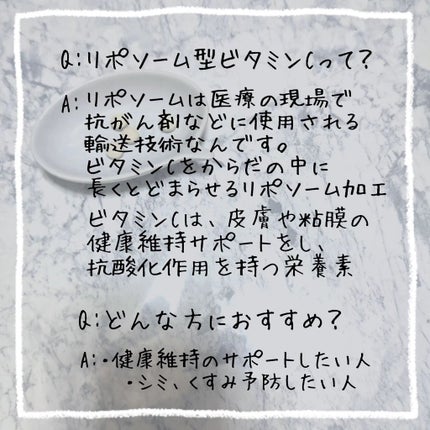 Q:リポソーム型ビタミンCって?
A:リポソームは医療の現場で
抗がん剤などに使用される
輸送技術なんです。
ビタミンCをからだの中に
長くとどまらせるリポソーム加工
ビタミンCは、皮膚や粘膜の
健康維持サポートをし、
抗酸化作用を持つ栄養素
Q:どんな方におすすめ?
A:・健康維持のサポートしたい人
・シミ、くすみ予防したい人